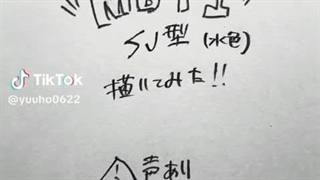 MBTI
SJ型(水色)
描いてみた!!
TikTok
@yuuho0622
声あり